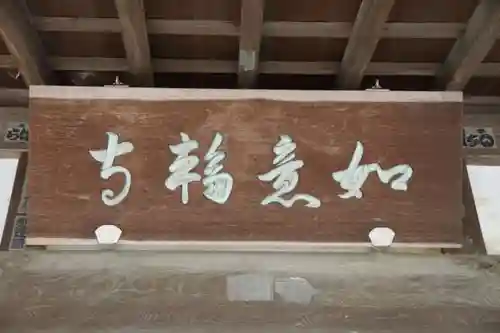 如意輪寺